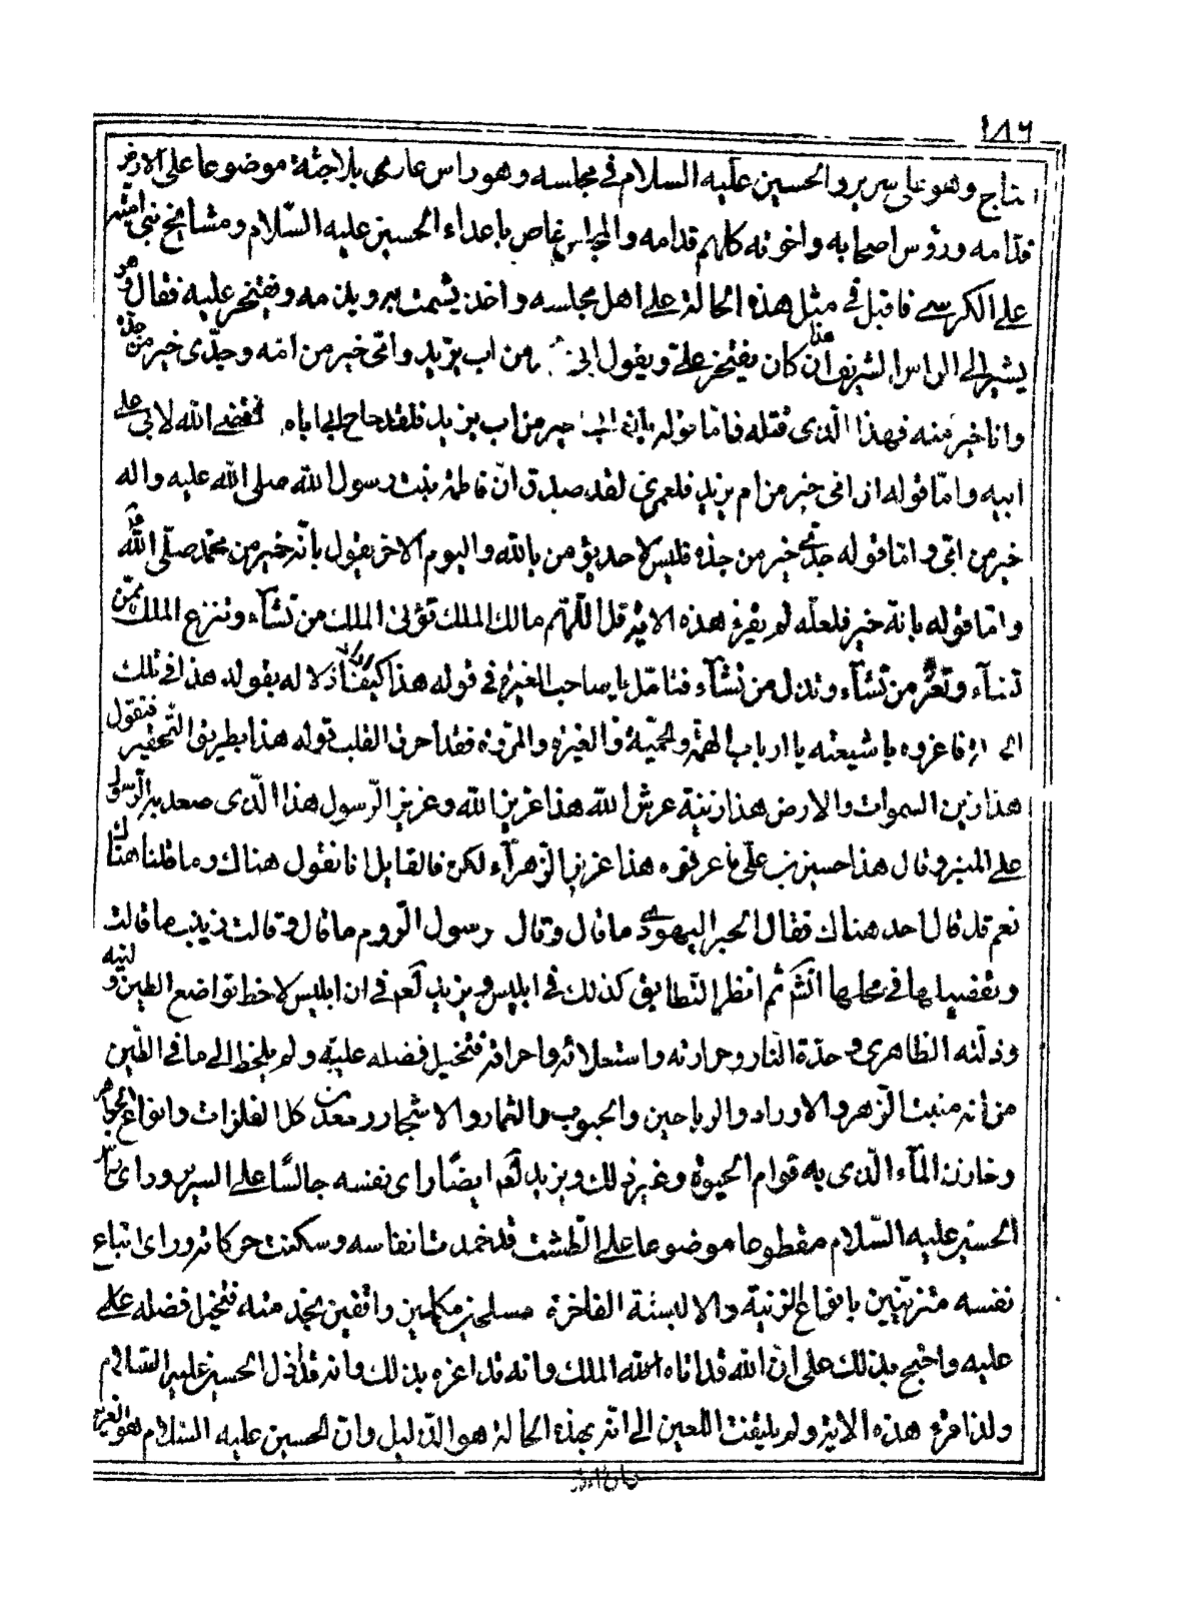 ١٨٦
تاج وهو على سرير والحسين عليه السلام في مجلسه وهو راس عار مى بلا جثة موضوعا على الارض
قدامه ورؤس اصحابه واخوته كلهم قدامه والمجلس غاص باعداء الحسين عليه السّلام ومشايخ بنى اميّه
على الكرسى فاقبل في مثل هذه الحالة على اهل مجلسه واخذ يشمت به ويذمه ويفتخر عليه فقال وهو
يشير الى الراس الشريف ان هذا كان يفتخر علىّ ويقول ابى خير من اب يزيد وامّى خير من امّه وجدّى خير من جدّه
وانا خير منه فهذا الّذى قتله فامّا قوله بان ابى خير من اب يزيد فلقد حاج ابى اباه فقضى الله لابى على
ابيه وامّا قوله ان امّى خير من ام يزيد فلعمرى لقد صدق انّ فاطمة بنت رسول الله صلى الله عليه واله
خير من امّى وامّا قوله جدّى خير من جدّه فليس لاحد يؤمن بالله واليوم الاخر يقول بانّه خير من محمّد صلّى الله
وامّا قوله بانّه خير فلعلّه لم يقرء هذه الاية قل اللّهمّ مالك الملك تؤتى الملك من تشآء وتنزع الملك ممّن
تشآء وتعزّ من تشآء وتذل من تشآء فتامّل يا صاحب الغيرة في قوله هذا كيف اراد اذلاله بقوله هذا في تلك
الحالة فاعزوه يا شيعته يا ارباب الهمّة والحميّة والغيرة والمروّة فقد احرق القلب قوله هذا بطريق التّحقير فنقول
هذا زين السموات والارض هذا زينة عرش الله هذا عزيز الله وعزيز الرّسول هذا الّذى صعد به الرّسول
على المنبر وقال هذا حسين بن علّى فاعرفوه هذا عزيز الزّهرآء لكن فالقايل انا نقول هناك وما قلنا هناك
نعم قد قال احد هناك فقال الحبر اليهودى ما قال وقال رسول الرّوم ما قال وقالت زينب ما قالت
وتفصيلها في محلها انشم ثم انظر التّطابق كذلك في ابليس ويزيد لعم في ان ابليس لاحظ تواضع الطين ولينه
وذلّته الظاهرى وحدّة النار وحرارته واستعلائه واحراقه فتخيل فضله عليه ولم يلحظ الى ما في الطّين
من انه منبت الزّهر والاوراد والرياحين والحبوب والثمار والاشجار ومعدن كل الفلزات وانواع الجواهر
وخازن المآء الّذى به قوام الحيوة وغير ذلك ويزيد لعم ايضًا راى نفسه جالسًا على السرير وراى راس
الحسين عليه السّلام مقطوعا موضوعا على الطّشت قد خمدت انفاسه وسكنت حركاته وراى اتباع
نفسه متزيّنين بانواع الزينة والالبسة الفاخرة مسلحين مكملين واقفين بخدمته، فتخيل فضله على
عليه واحتج بذلك على انّ الله قد اتاه الله الملك وانه قد اعزه بذلك وانه قد اذل الحسين عليه السّلام
ولذا قرء هذه الاية ولم يلتفت اللعين الى انّه بهذه الحالة هو الذّليل وانّ الحسين عليه السّلام هو العزيز